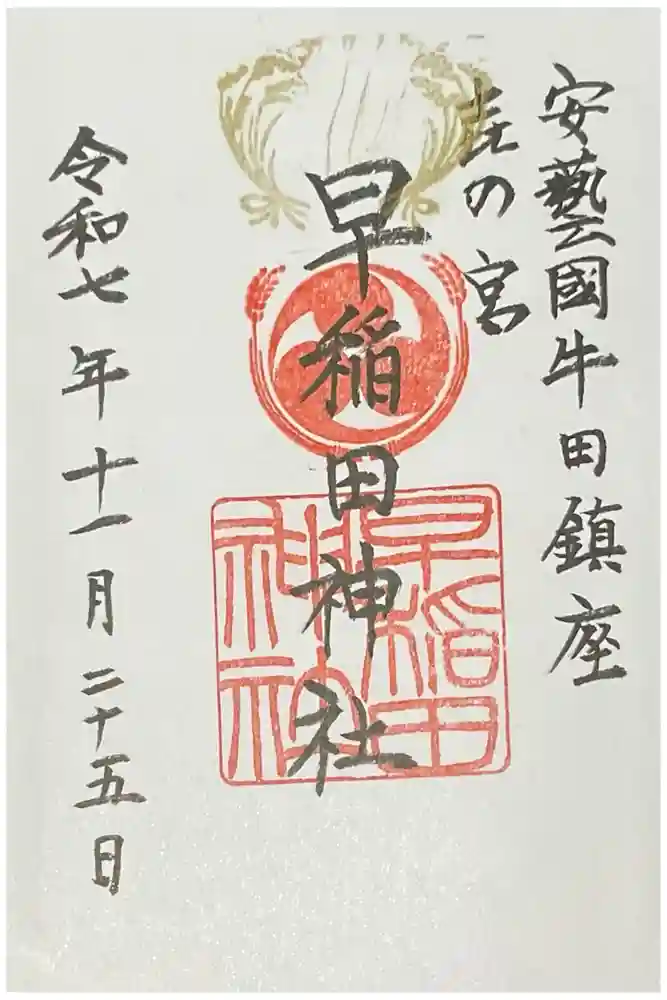 安藝國牛田鎮座
の宮
早稲田神社
早稲田神社
令和七年十一月二十五日